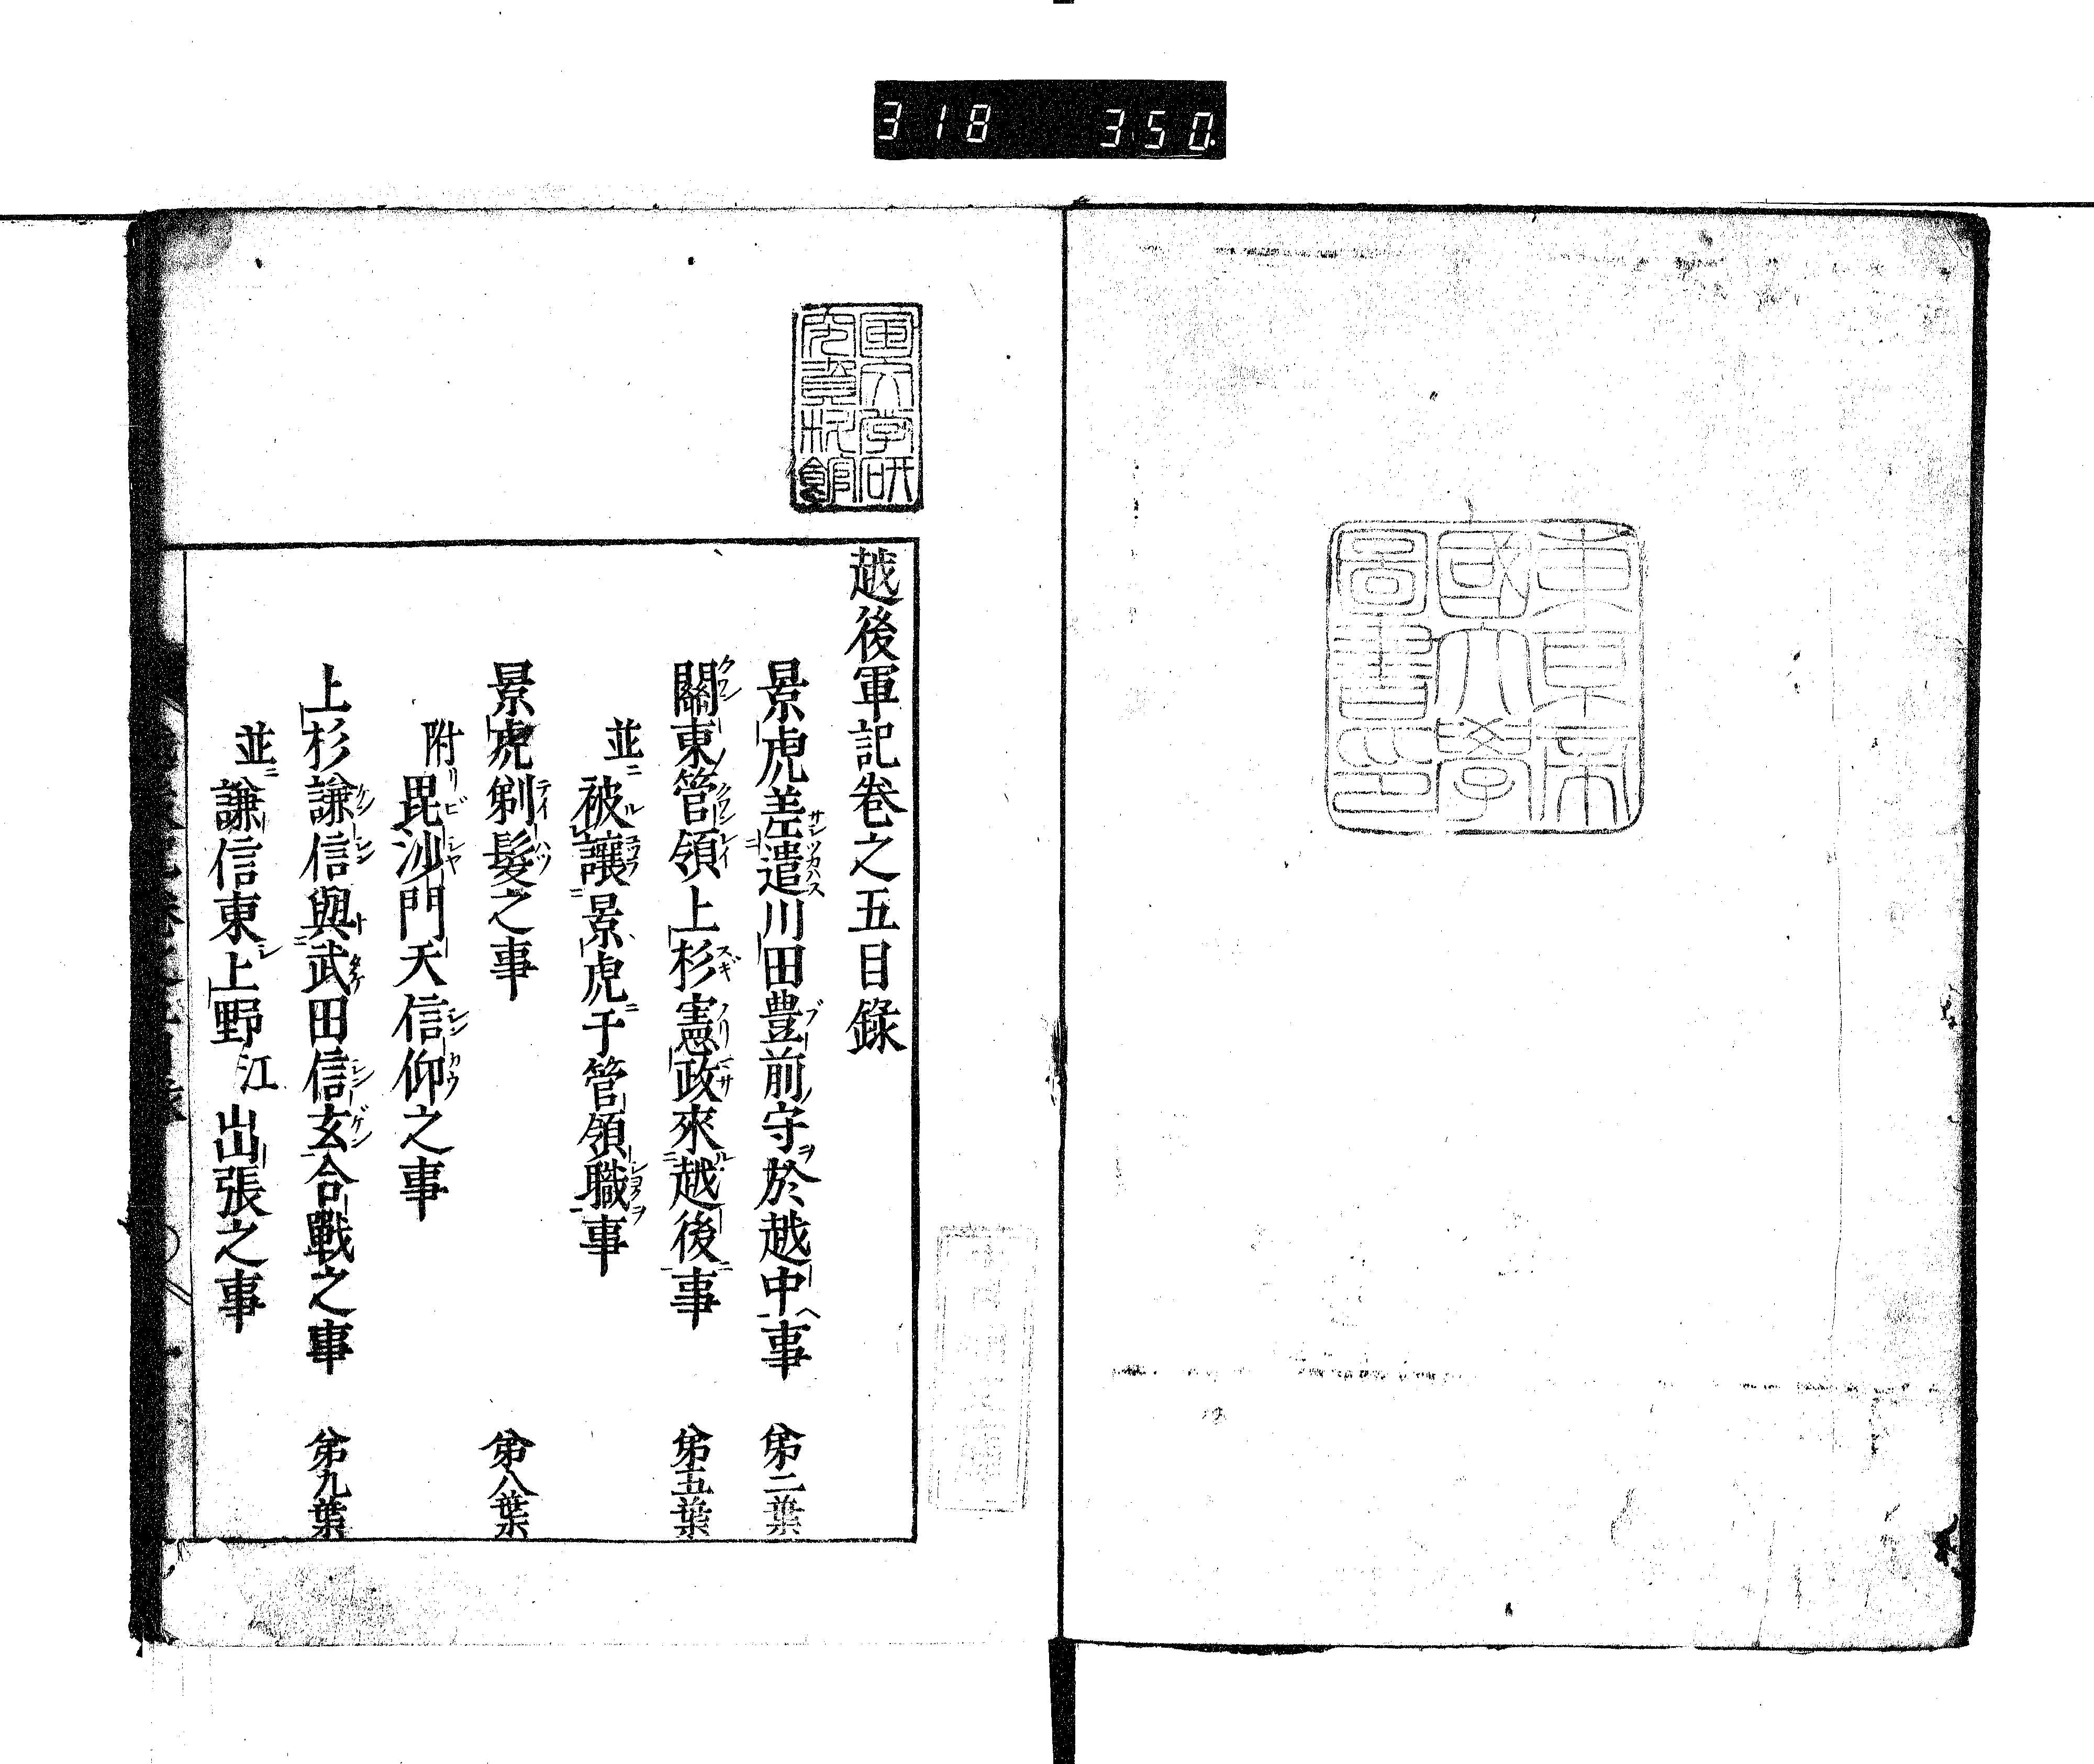 318 350
東京帝
國大學
圖書印
越後軍記巻之五目錄
景虎差遣川田豊前守於越中事 第二葉
關東管領上杉憲政來越後事 第五葉
並被讓景虎于管領職事
景虎剃髮之事 第八葉
附毘沙門天信仰之事
上杉謙信與武田信玄合戰之事 第九葉
並謙信東上野江出張之事